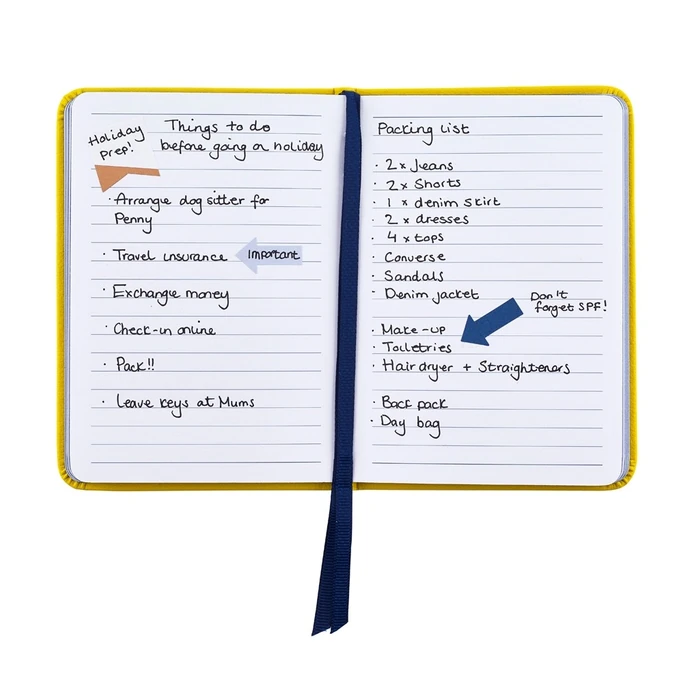 Holiday
prep!
Things to do
before going on holiday
· Arrange dog sitter for
Penny
· Travel insurance
Important
· Exchange money
· Check-in online
· Pack!!
· Leave keys at Mums
Packing list
· 2 x Jeans
· 2 x Shorts
· 1 x denim skirt
· 2 x dresses
· 4 x tops
· Converse
· Sandals
· Denim jacket
Don't
forget SPF!
· Make-up
· Toiletries
· Hair dryer + Straighteners
· Back pack
· Day bag